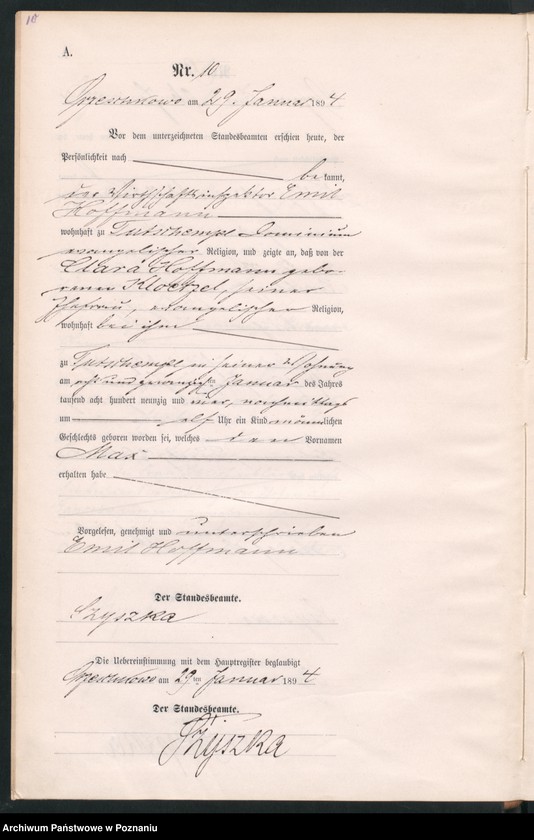 10
A.
Nr. 10
am 29. Januar 1894
Vor dem unterzeichneten Standesbeamten erschien heute, der
Persönlichkeit nach
bekannt,
der Wirthschaftsinspektor Emil
Hoffmann
wohnhaft zu Dominium
evangelischer Religion, und zeigte an, daß von der
Clara Hoffmann gebo-
renen Kloetzel, seiner
Ehefrau, evangelischer Religion,
wohnhaft bei ihm
zu in seiner Wohnung
am acht und zwanzigsten Januar des Jahres
tausend acht hundert neunzig und vier, vormittags
um elf Uhr ein Kind männlichen
Geschlechts geboren worden sei, welches den Vornamen
Max
erhalten habe
Vorgelesen, genehmigt und unterschrieben
Emil Hoffmann
Der Standesbeamte.
Szyszka
Die Uebereinstimmung mit dem Hauptregister beglaubigt
am 29ten Januar 1894
Der Standesbeamte.
Szyszka
Archiwum Państwowe w Poznaniu